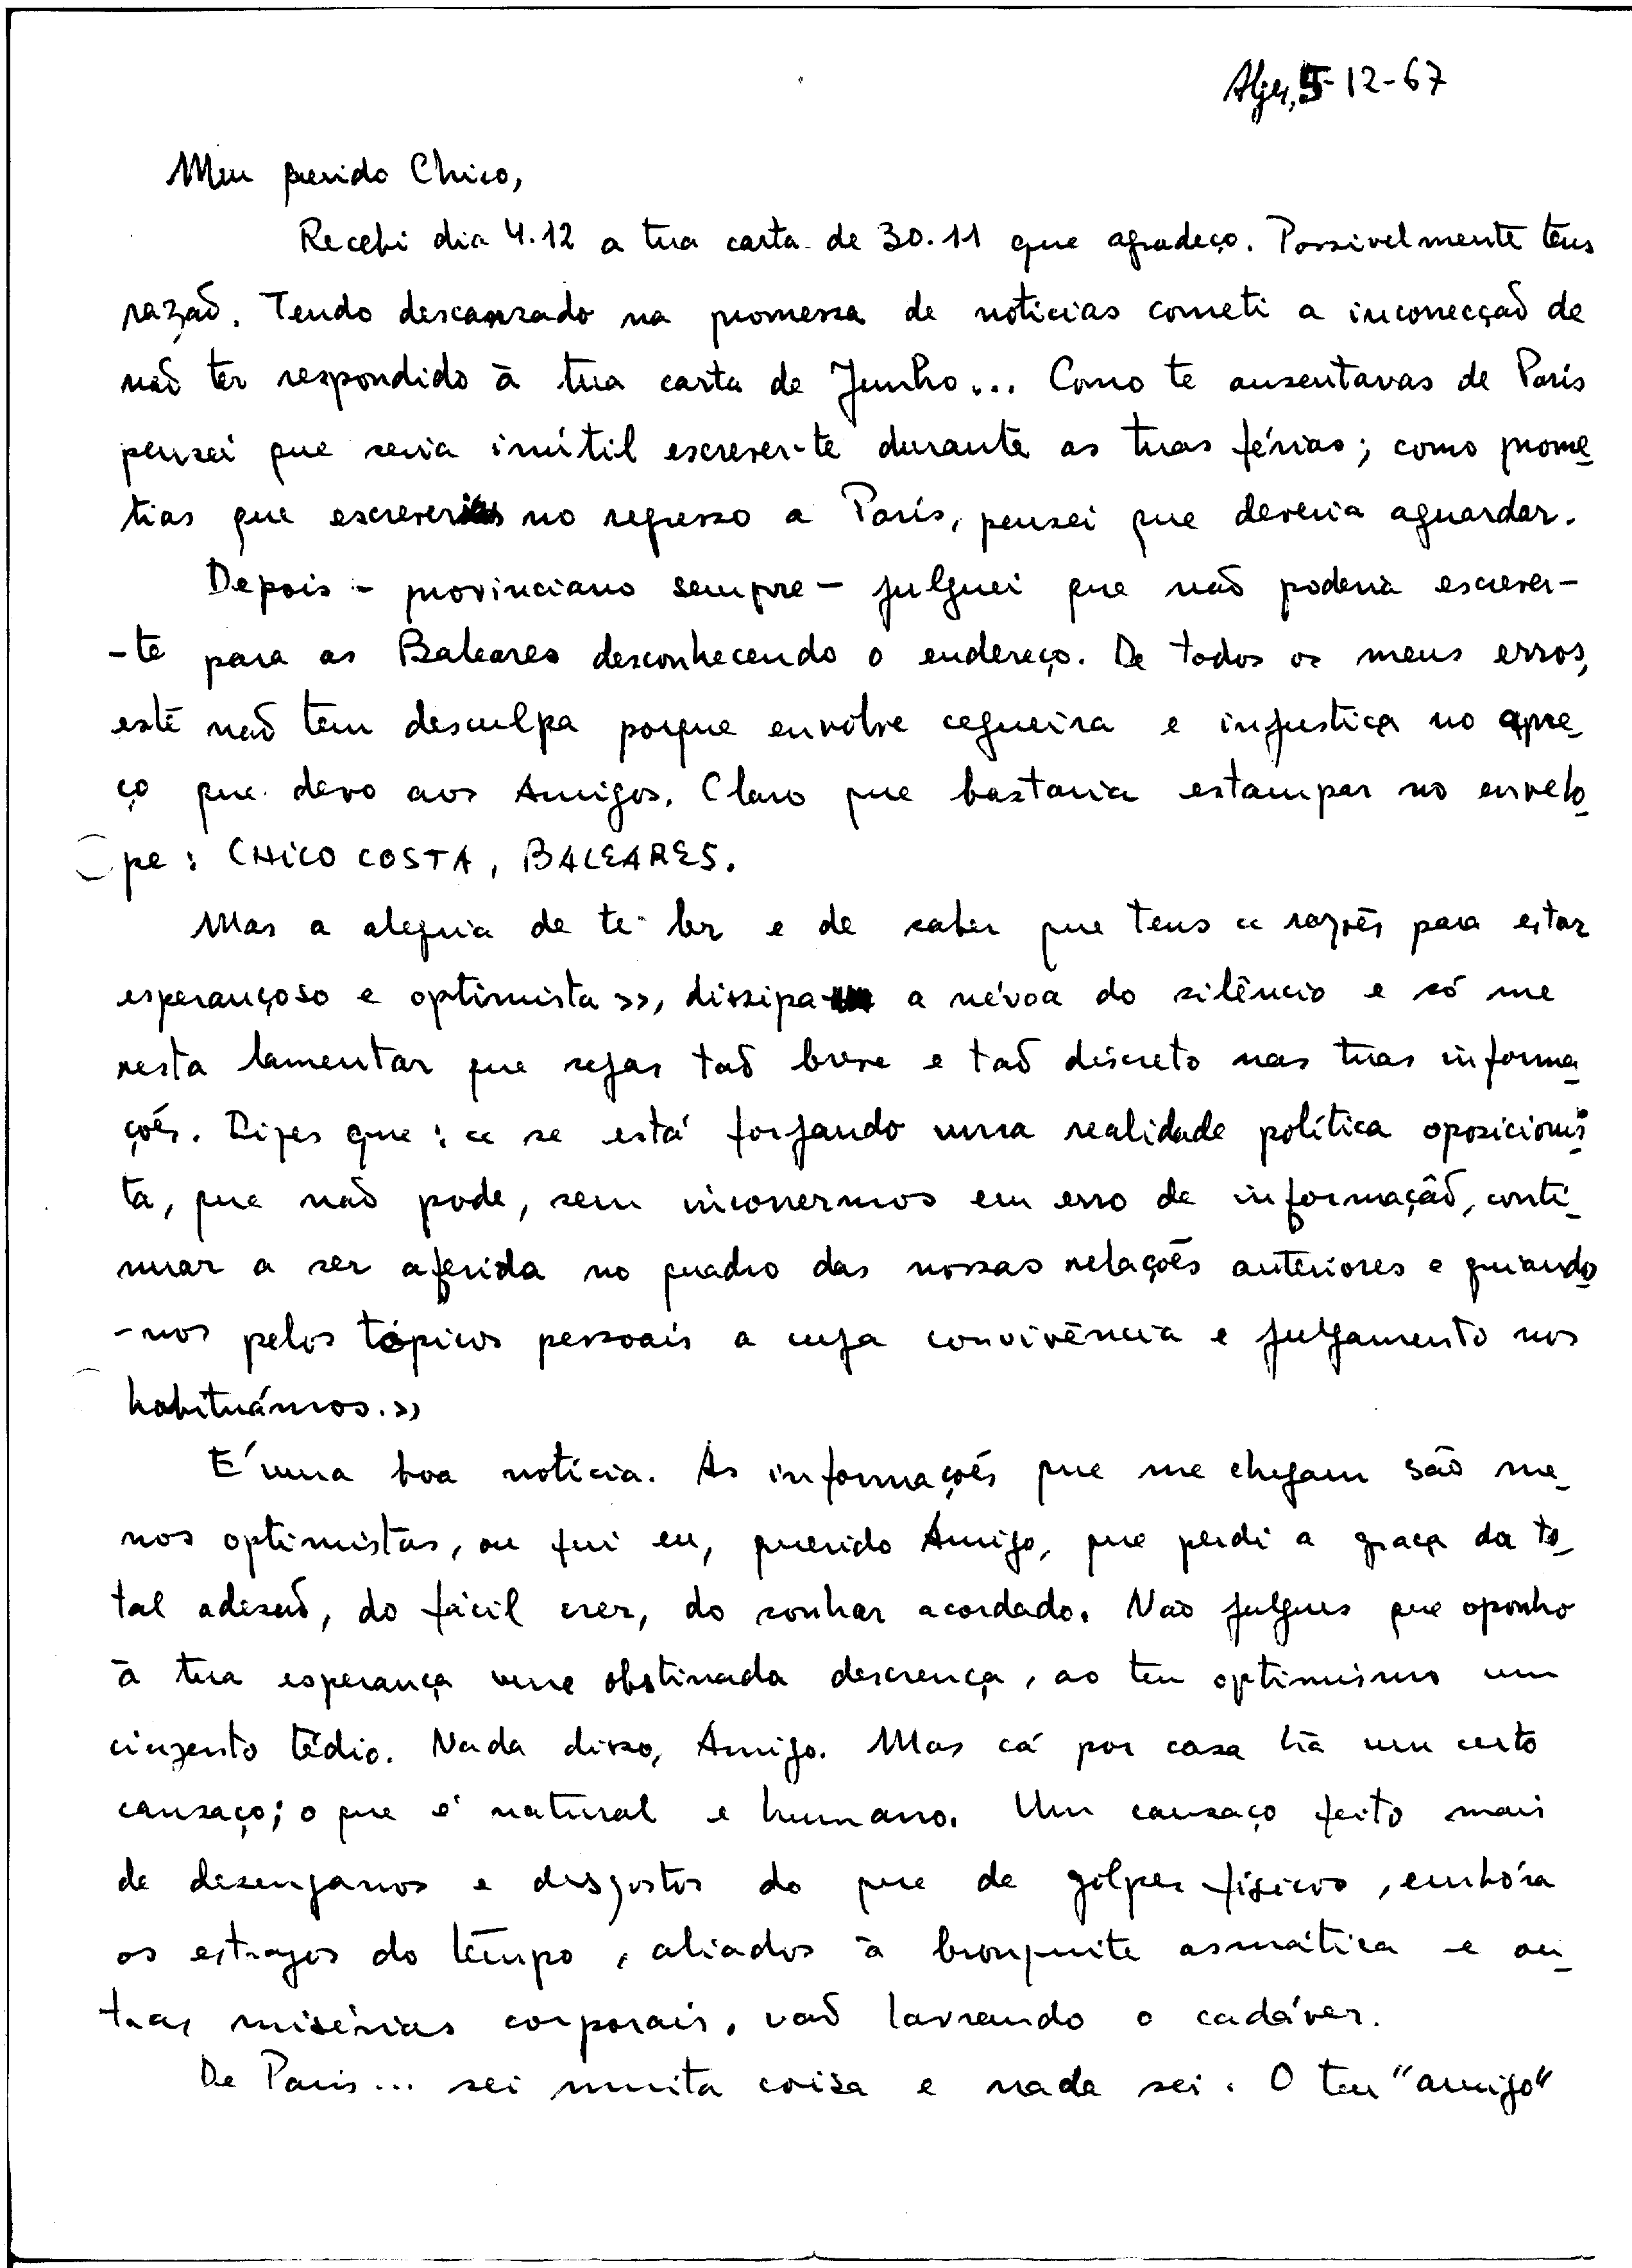 Alger, 5-12-67
Meu querido Chico,
Recebi dia 4.12 a tua carta de 30.11 que agradeço. Possivelmente tens
razaõ. Tendo descansado na promessa de noticias cometi a incorrecçaõ de
naõ ter respondido à tua carta de Junho... Como te ausentavas de Paris
pensei que seria inútil escrever-te durante as tuas férias; como prome_
tias que escreverias no regresso a Paris, pensei que deveria aguardar.
Depois - provinciano sempre - julguei que naõ poderia escrever-
-te para as Baleares desconhecendo o endereço. De todos os meus erros,
este naõ tem desculpa porque envolve cegueira e injustiça no apre_
ço que devo aos Amigos. Claro que bastaria estampar no envelo_
pe: CHICO COSTA, BALEARES.
Mas a alegria de te ler e de saber que tens «razoẽs para estar
esperançoso e optimista», dissipa a névoa do silêncio e só me
resta lamentar que sejas taõ breve e taõ discreto nas tuas informa_
çoẽs. Dizes que: «se está forjando uma realidade política oposicionis_
ta, que naõ pode, sem incorrermos em erro de informaçaõ, conti_
nuar a ser aferida no quadro das nossas relaçoẽs anteriores e guiando_
-nos pelos tópicos pessoais a cuja convivência e julgamento nos
habituámos.»
É uma boa notícia. As informaçoẽs que me chegam são me_
nos optimistas, ou fui eu, querido Amigo, que perdi a graça da to_
tal adesaõ, do fácil crer, do sonhar acordado. Nao julgues que oponho
à tua esperança uma obstinada descrença, ao teu optimismo um
cinzento tédio. Nada disso, Amigo. Mas cá por casa há um certo
cansaço; o que é natural e humano. Um cansaço feito mais
de desenganos e desgostos do que de golpes físicos, embóra
os estragos do tempo, aliados à bronquite asmática e ou_
tras misérias corporais, vaõ lavrando o cadáver.
De Paris... sei muita coisa e nada sei. O teu "amigo"